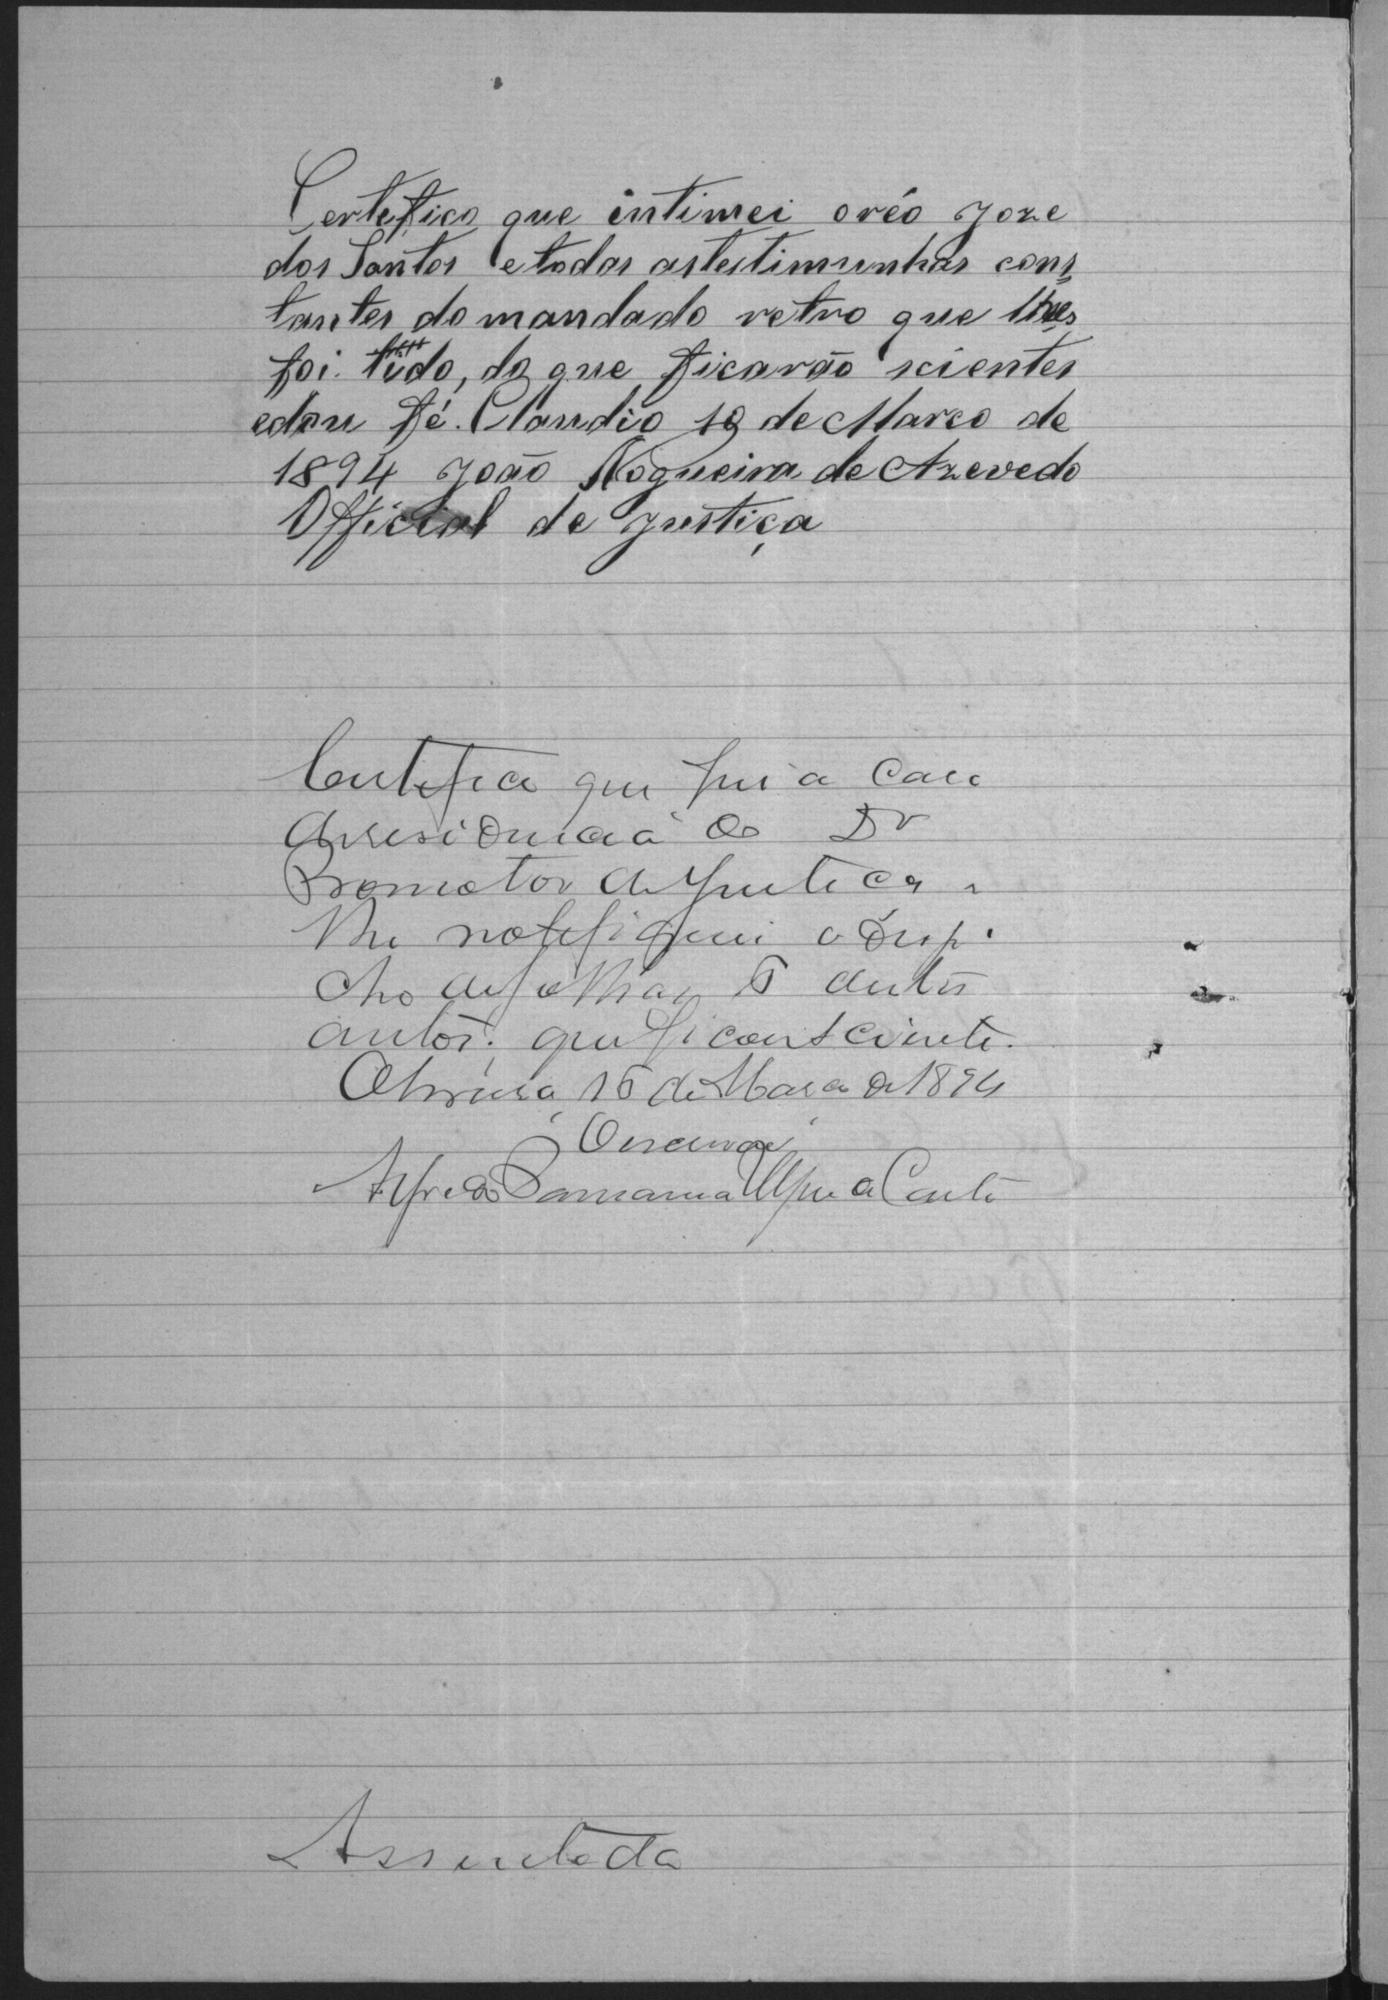 Certefico que intimei oréo Joze
dos Santos etodas astestimunhas cons
tantes do mandado retro que lhes
foi lido, do que ficarão scientes
edou fé. Claudio 10 de Março de
1894 João Nogueira de Azevedo
Official de justiça
Certefico que fui a casa
deresidencia do Dr
Promotor dejustiça e
lhe notefiquei o despa
cho defolhas 6 destes
autos. queficou sciente.
16 de Março de 1894
O escrivão
Alfredo
Assentada